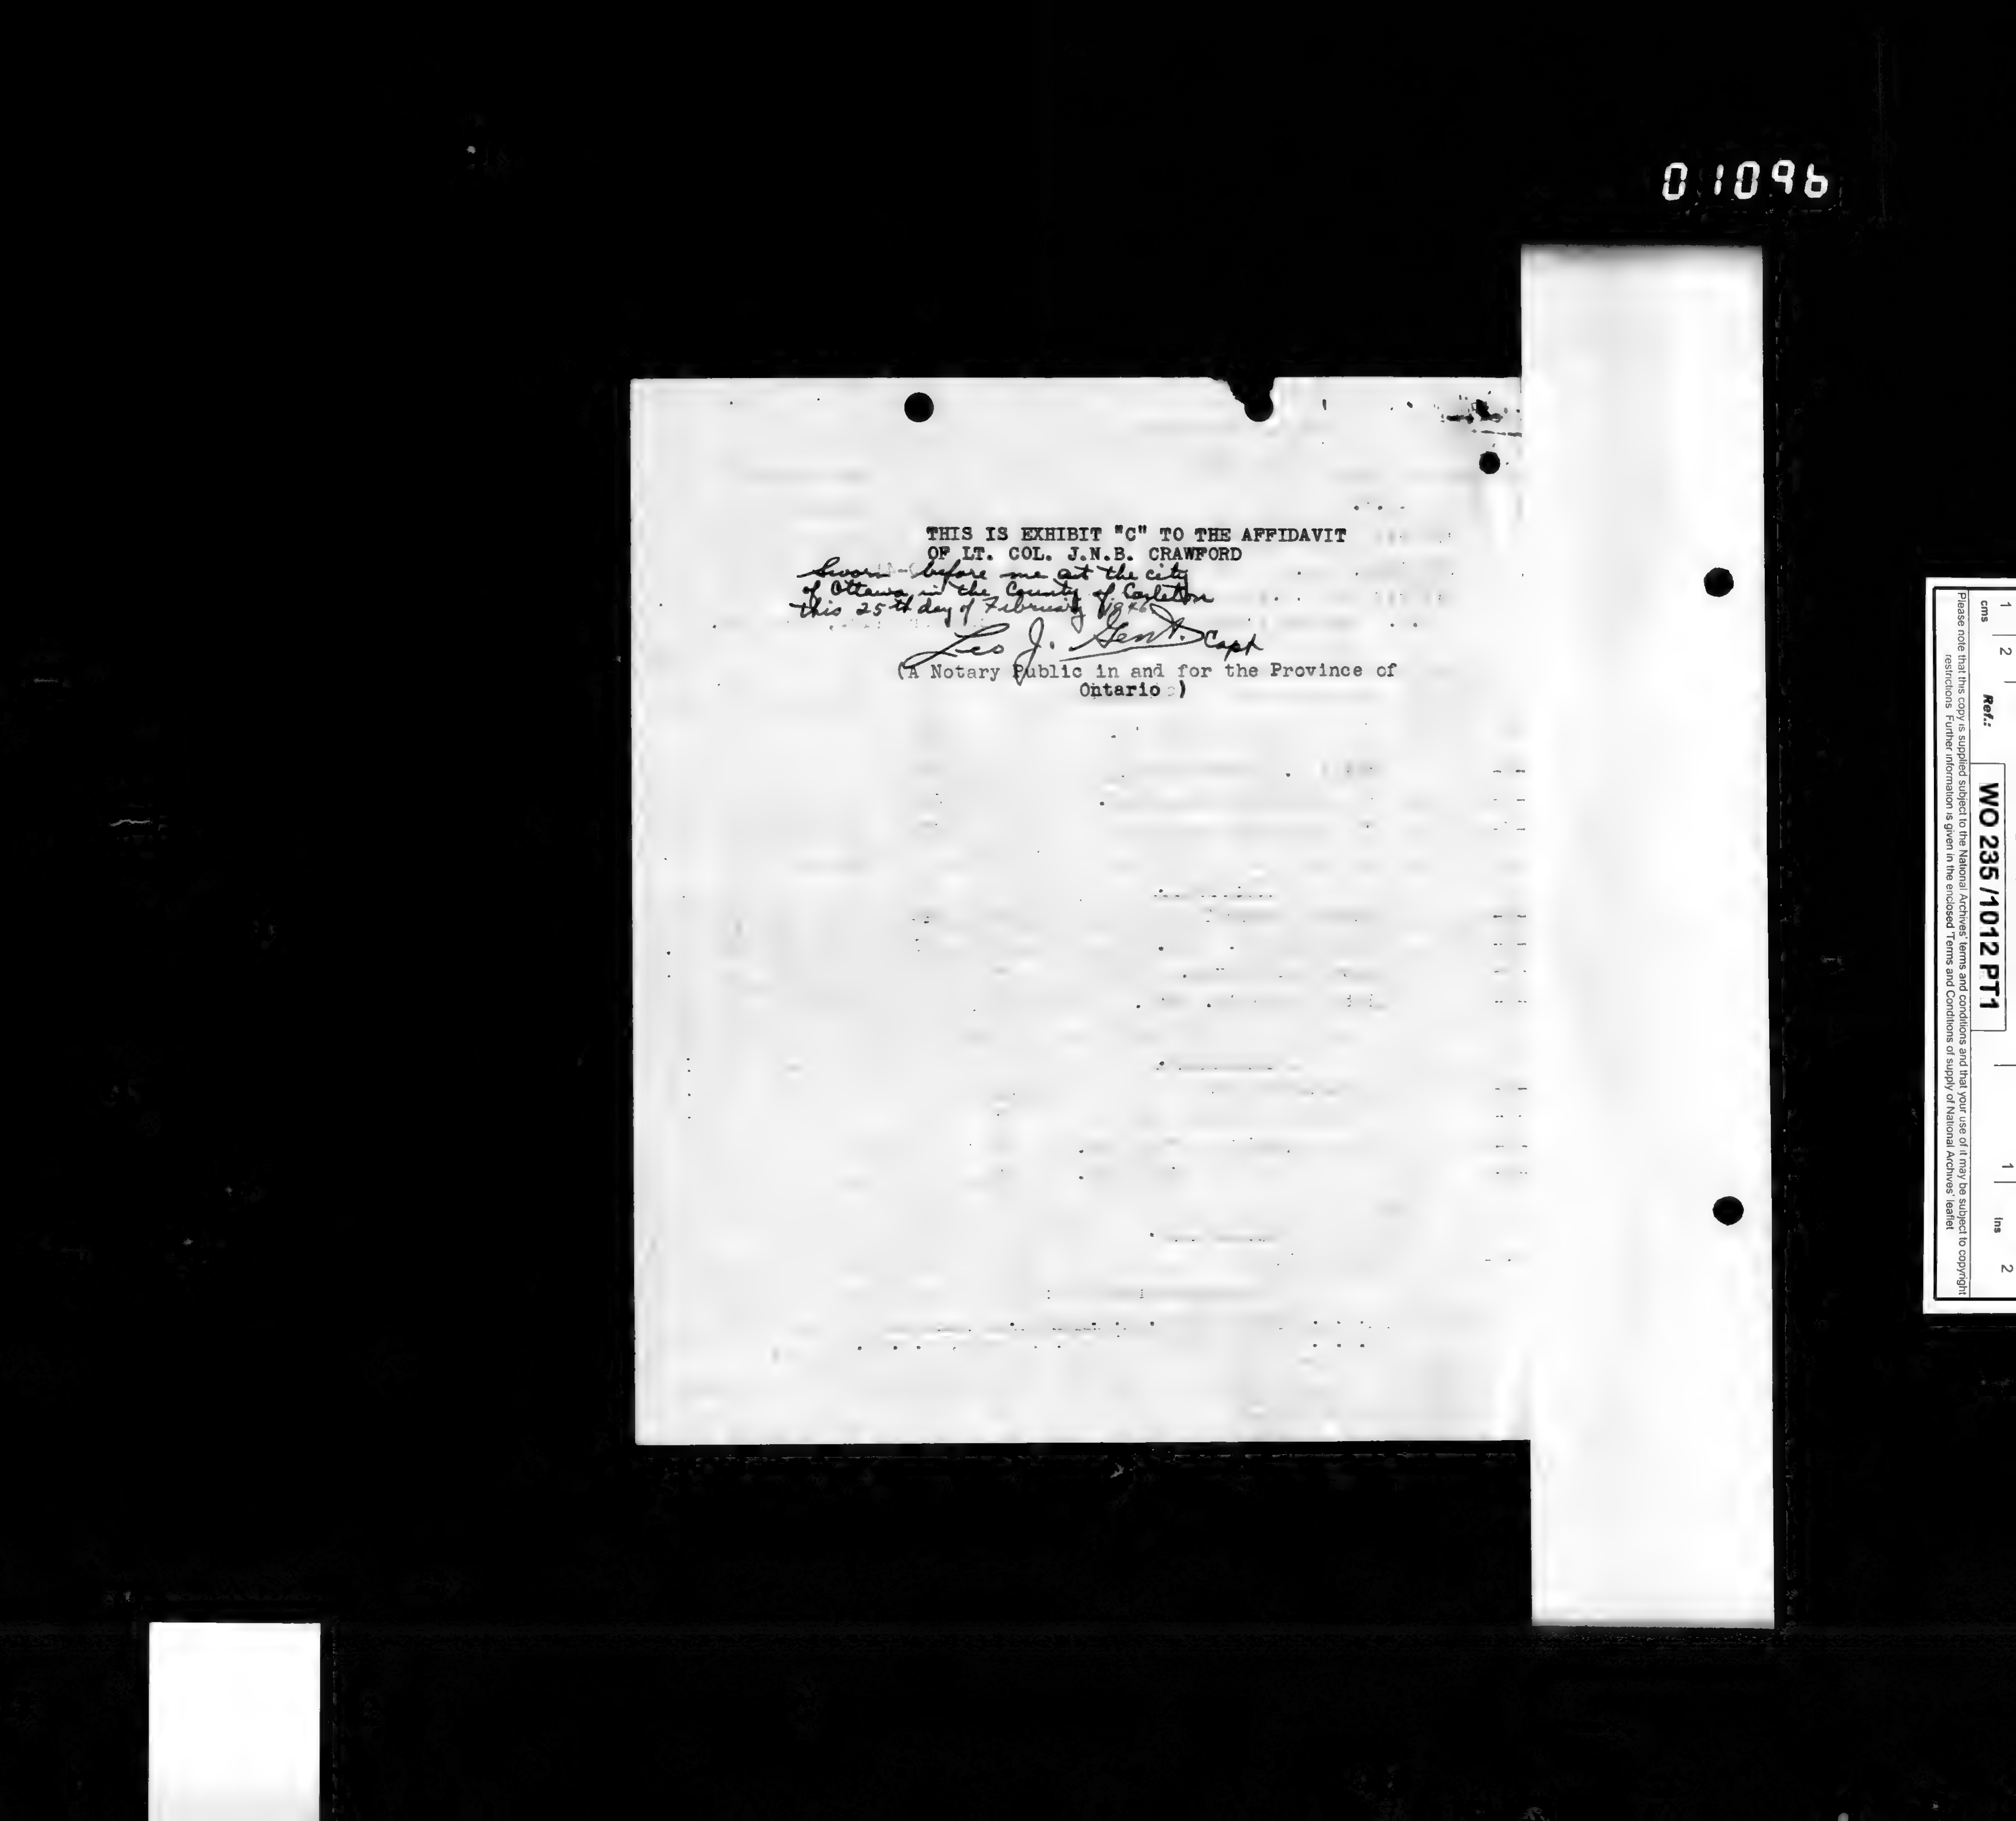 01096
THIS IS EXHIBIT "C" TO THE AFFIDAVIT
OF LT. COL. J.N.B. CRAWFORD
Sworn before me at the city
of Ottawa in the County of Carleton
this 25th day of February 1946
Leo J. Gent. Capt
(A Notary Public in and for the Province of
Ontario )
1 2 1 2
cms Ref.: WO 235/1012 PT1 Ins
Please note that this copy is supplied subject to the National Archives' terms and conditions and that your use of it may be subject to copyright
restrictions. Further information is given in the enclosed 'Terms and Conditions of supply of National Archives' leaflet